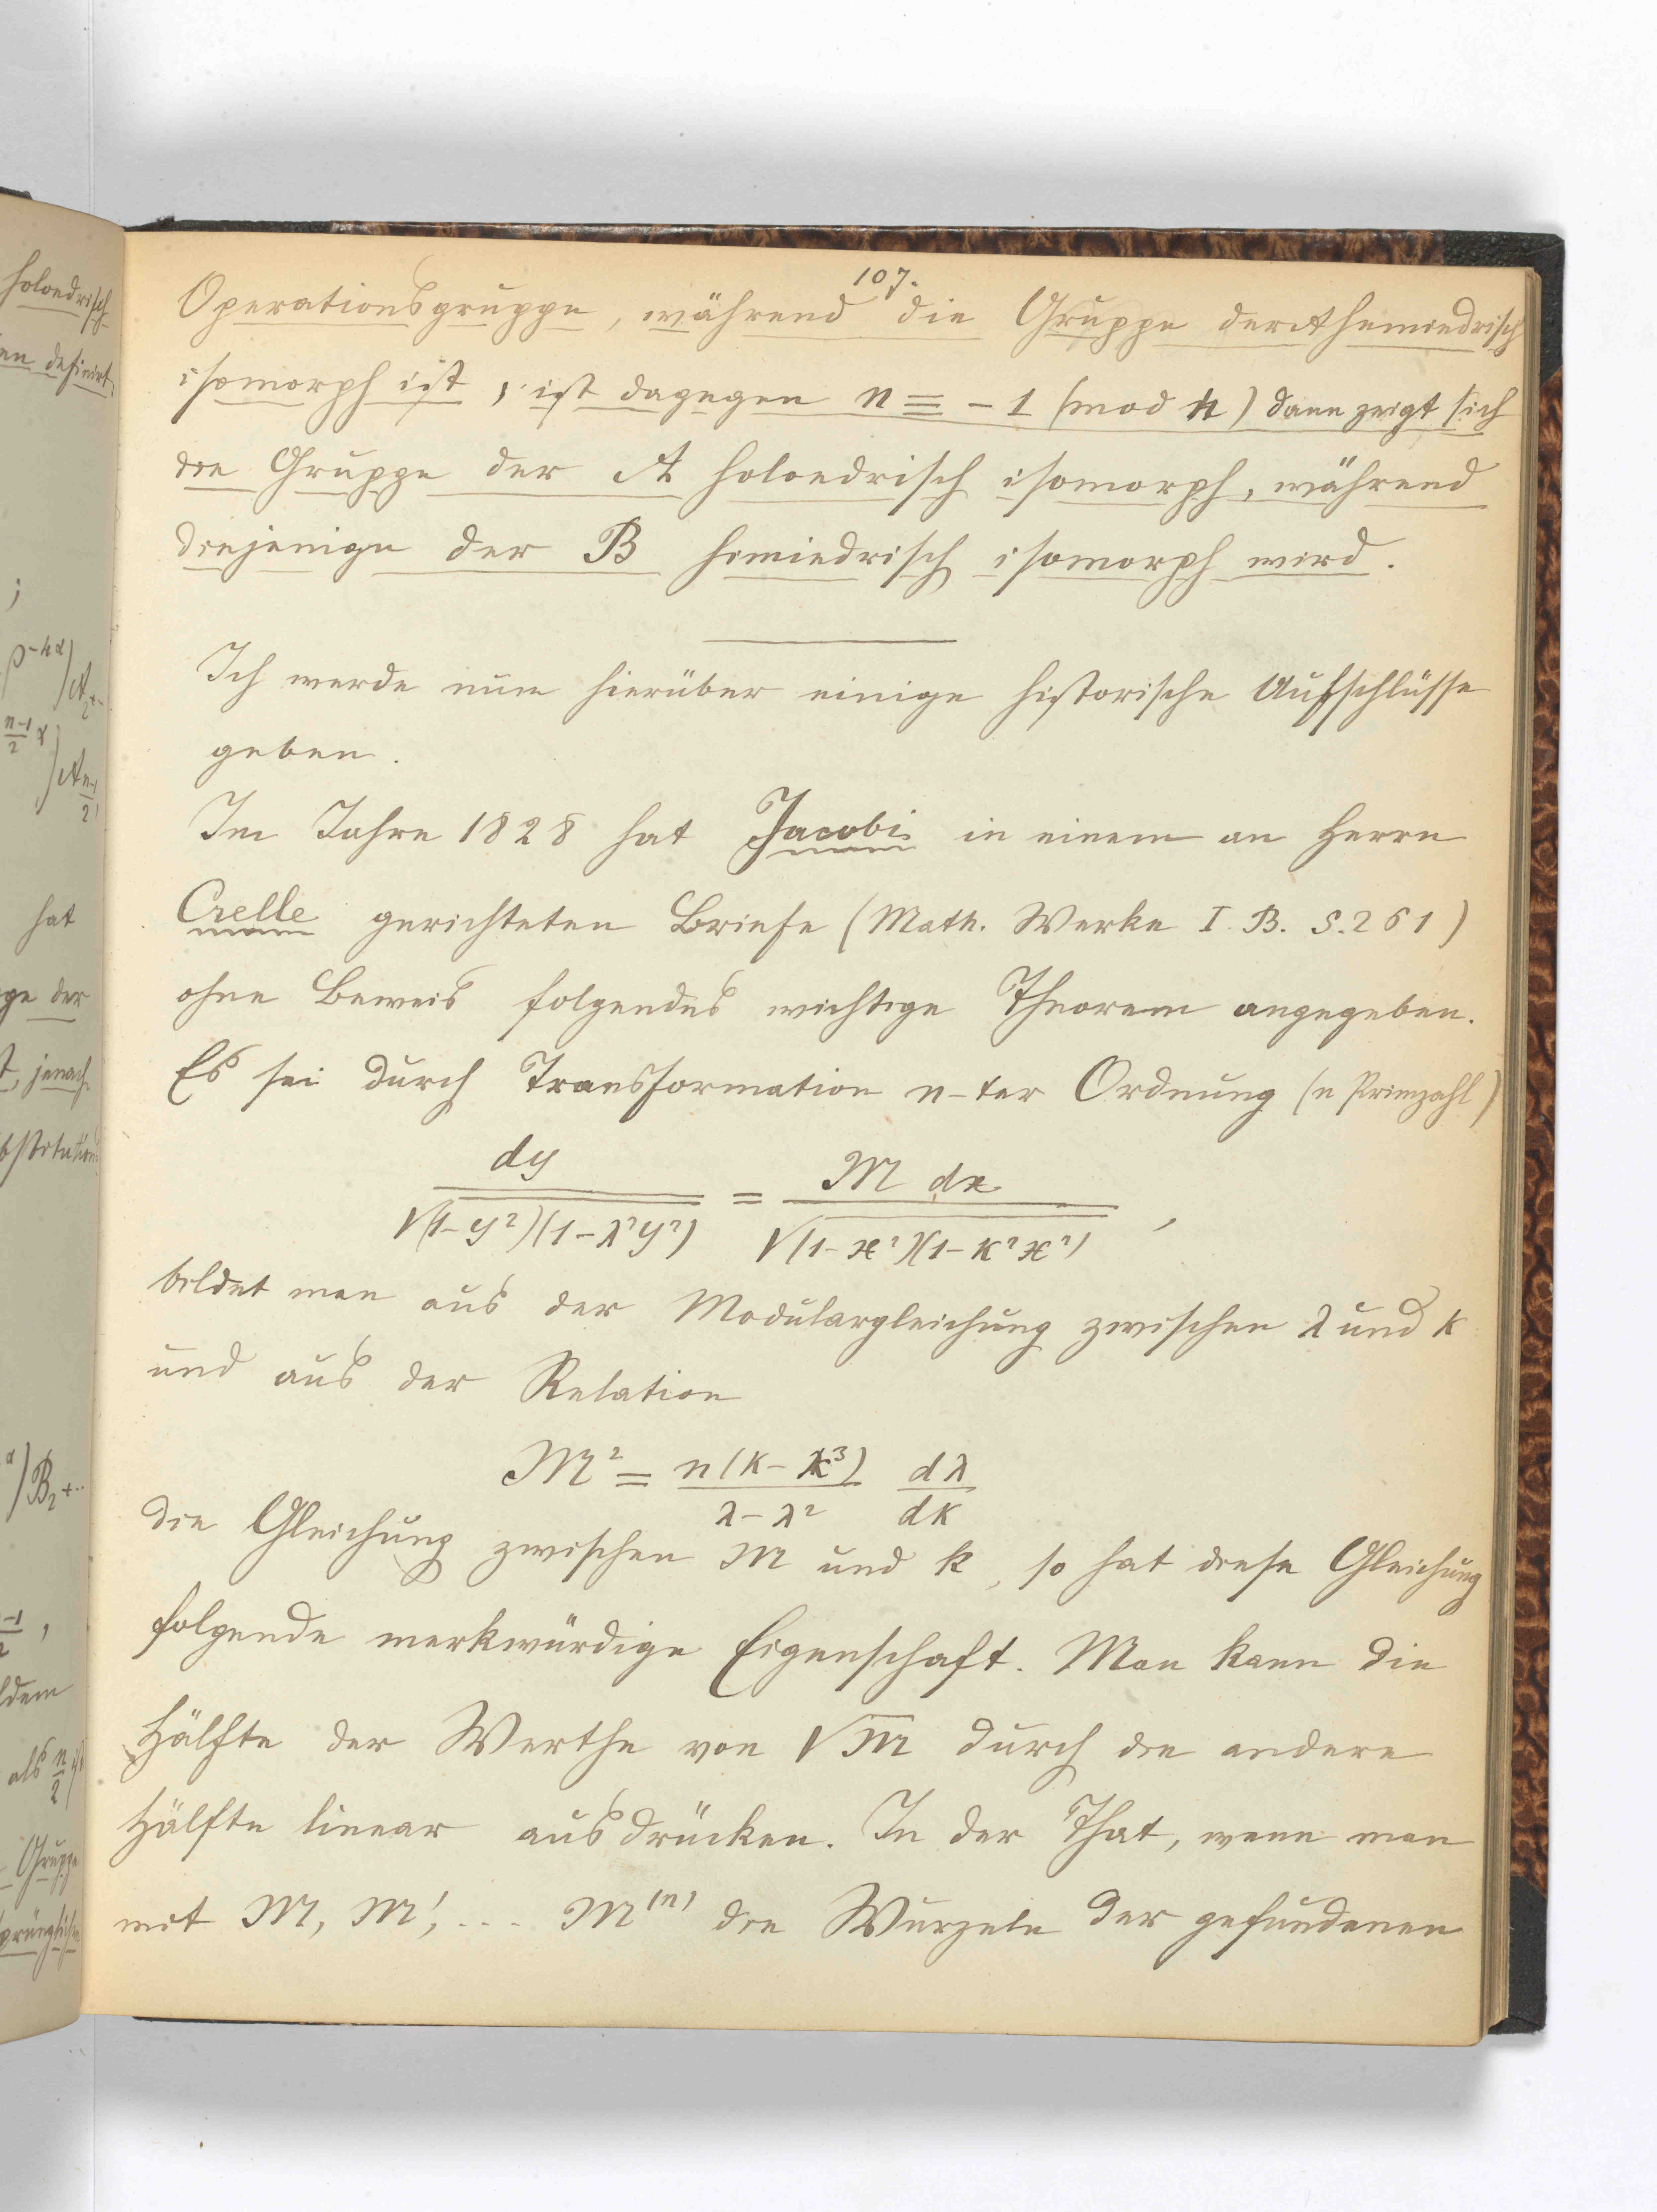 107.
Operationsgruppe, während die Gruppe der A hemiedrisch
isomorph ist, ist dagegen n ≡ -1 (mod 4) dann zeigt sich
die Gruppe der A holoedrisch isomorph, während
diejenige der B hemiedrisch isomorph wird.
Ich werde nun hierüber einige historische Aufschlüsse
geben.
Im Jahre 1828 hat Jacobi in einem an Herrn
Crelle gerichteten Briefe (Math. Werke I. B. S. 261)
ohne Beweis folgendes wichtige Theorem angegeben.
Es sei durch Transformation n-ter Ordnung (n Primzahl)
dy / √(1-y²)(1-λ²y²) = M dx / √(1-x²)(1-k²x²) ,
bildet man aus der Modulargleichung zwischen λ und k
und aus der Relation
M² = n(k-k³) / λ-λ² dλ / dk
die Gleichung zwischen M und k, so hat diese Gleichung
folgende merkwürdige Eigenschaft. Man kann die
Hälfte der Werthe von √M durch die andere
Hälfte linear ausdrücken. In der That, wenn man
mit M, M', ... M⁽ⁿ⁾ die Wurzeln der gefundenen
holoedrisch
en definirt,
;
hat
ge der
t, jenach-
bstitution
dem
als n/2 ist
Gruppe